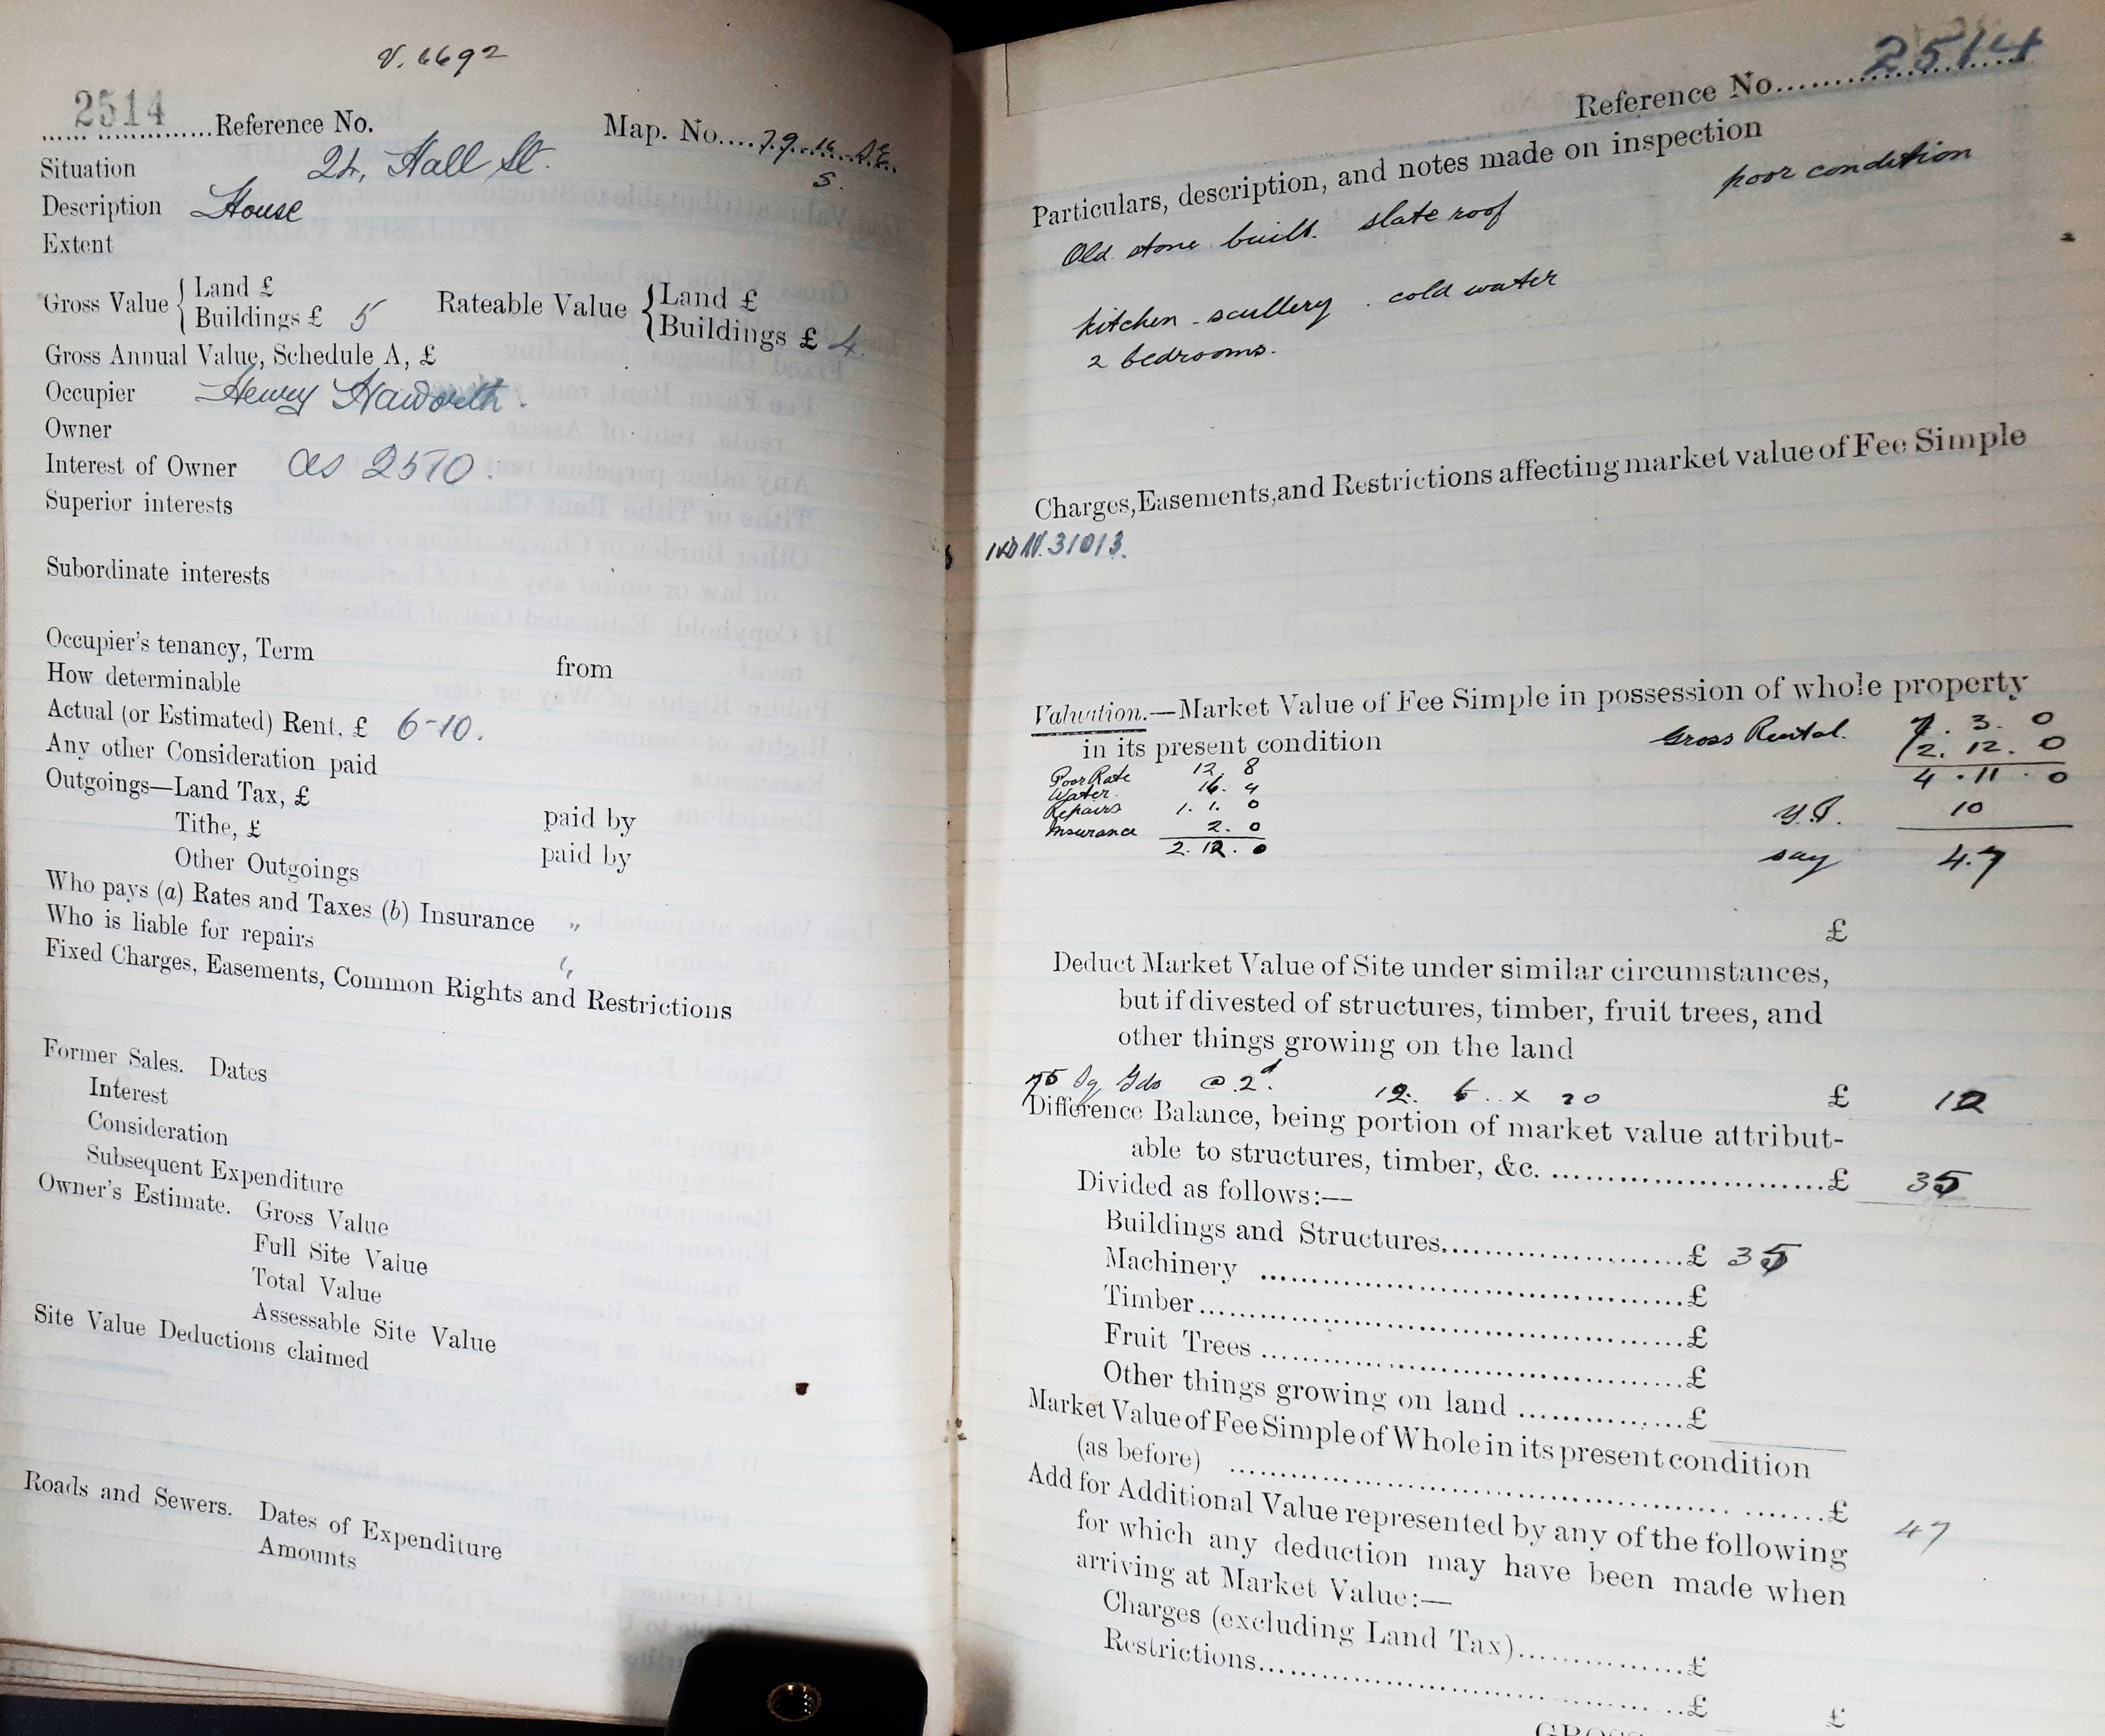 V. 6692
2514 Reference No. Map. No. 79. 16. S.E.
S.
Situation 24, Hall St.
Description House
Extent
Gross Value { Land £
Buildings £ 5
Rateable Value { Land £
Buildings £ 4.
Gross Annual Value, Schedule A, £
Occupier Henry Haworth.
Owner
Interest of Owner as 2510.
Superior interests
Subordinate interests
Occupier's tenancy, Term from
How determinable
Actual (or Estimated) Rent, £ 6-10.
Any other Consideration paid
Outgoings—Land Tax, £ paid by
Tithe, £ paid by
Other Outgoings
Who pays (a) Rates and Taxes (b) Insurance "
Who is liable for repairs "
Fixed Charges, Easements, Common Rights and Restrictions
Former Sales. Dates
Interest
Consideration
Subsequent Expenditure
Owner's Estimate. Gross Value
Full Site Value
Total Value
Assessable Site Value
Site Value Deductions claimed
Roads and Sewers. Dates of Expenditure
Amounts
Reference No. 2514
Particulars, description, and notes made on inspection
poor condition
Old stone built. slate roof
kitchen - scullery . cold water
2 bedrooms.
Charges, Easements, and Restrictions affecting market value of Fee Simple
31013.
Valuation.—Market Value of Fee Simple in possession of whole property
in its present condition
Gross Rental. 7. 3. 0
2. 12. 0
4. 11. 0
Poor Rate 12. 8
Water. 16. 4
Repairs 1. 1. 0
Insurance 2. 0
2. 12. 0
Y.P. 10
say 47
£
Deduct Market Value of Site under similar circumstances,
but if divested of structures, timber, fruit trees, and
other things growing on the land
75 Sq Yds @ 2d. 12. 6. x 20 £ 12
Difference Balance, being portion of market value attribut-
able to structures, timber, &c. £ 35
Divided as follows:—
Buildings and Structures £ 35
Machinery £
Timber £
Fruit Trees £
Other things growing on land £
Market Value of Fee Simple of Whole in its present condition
(as before) £ 47
Add for Additional Value represented by any of the following
for which any deduction may have been made when
arriving at Market Value:—
Charges (excluding Land Tax) £
Restrictions £ £